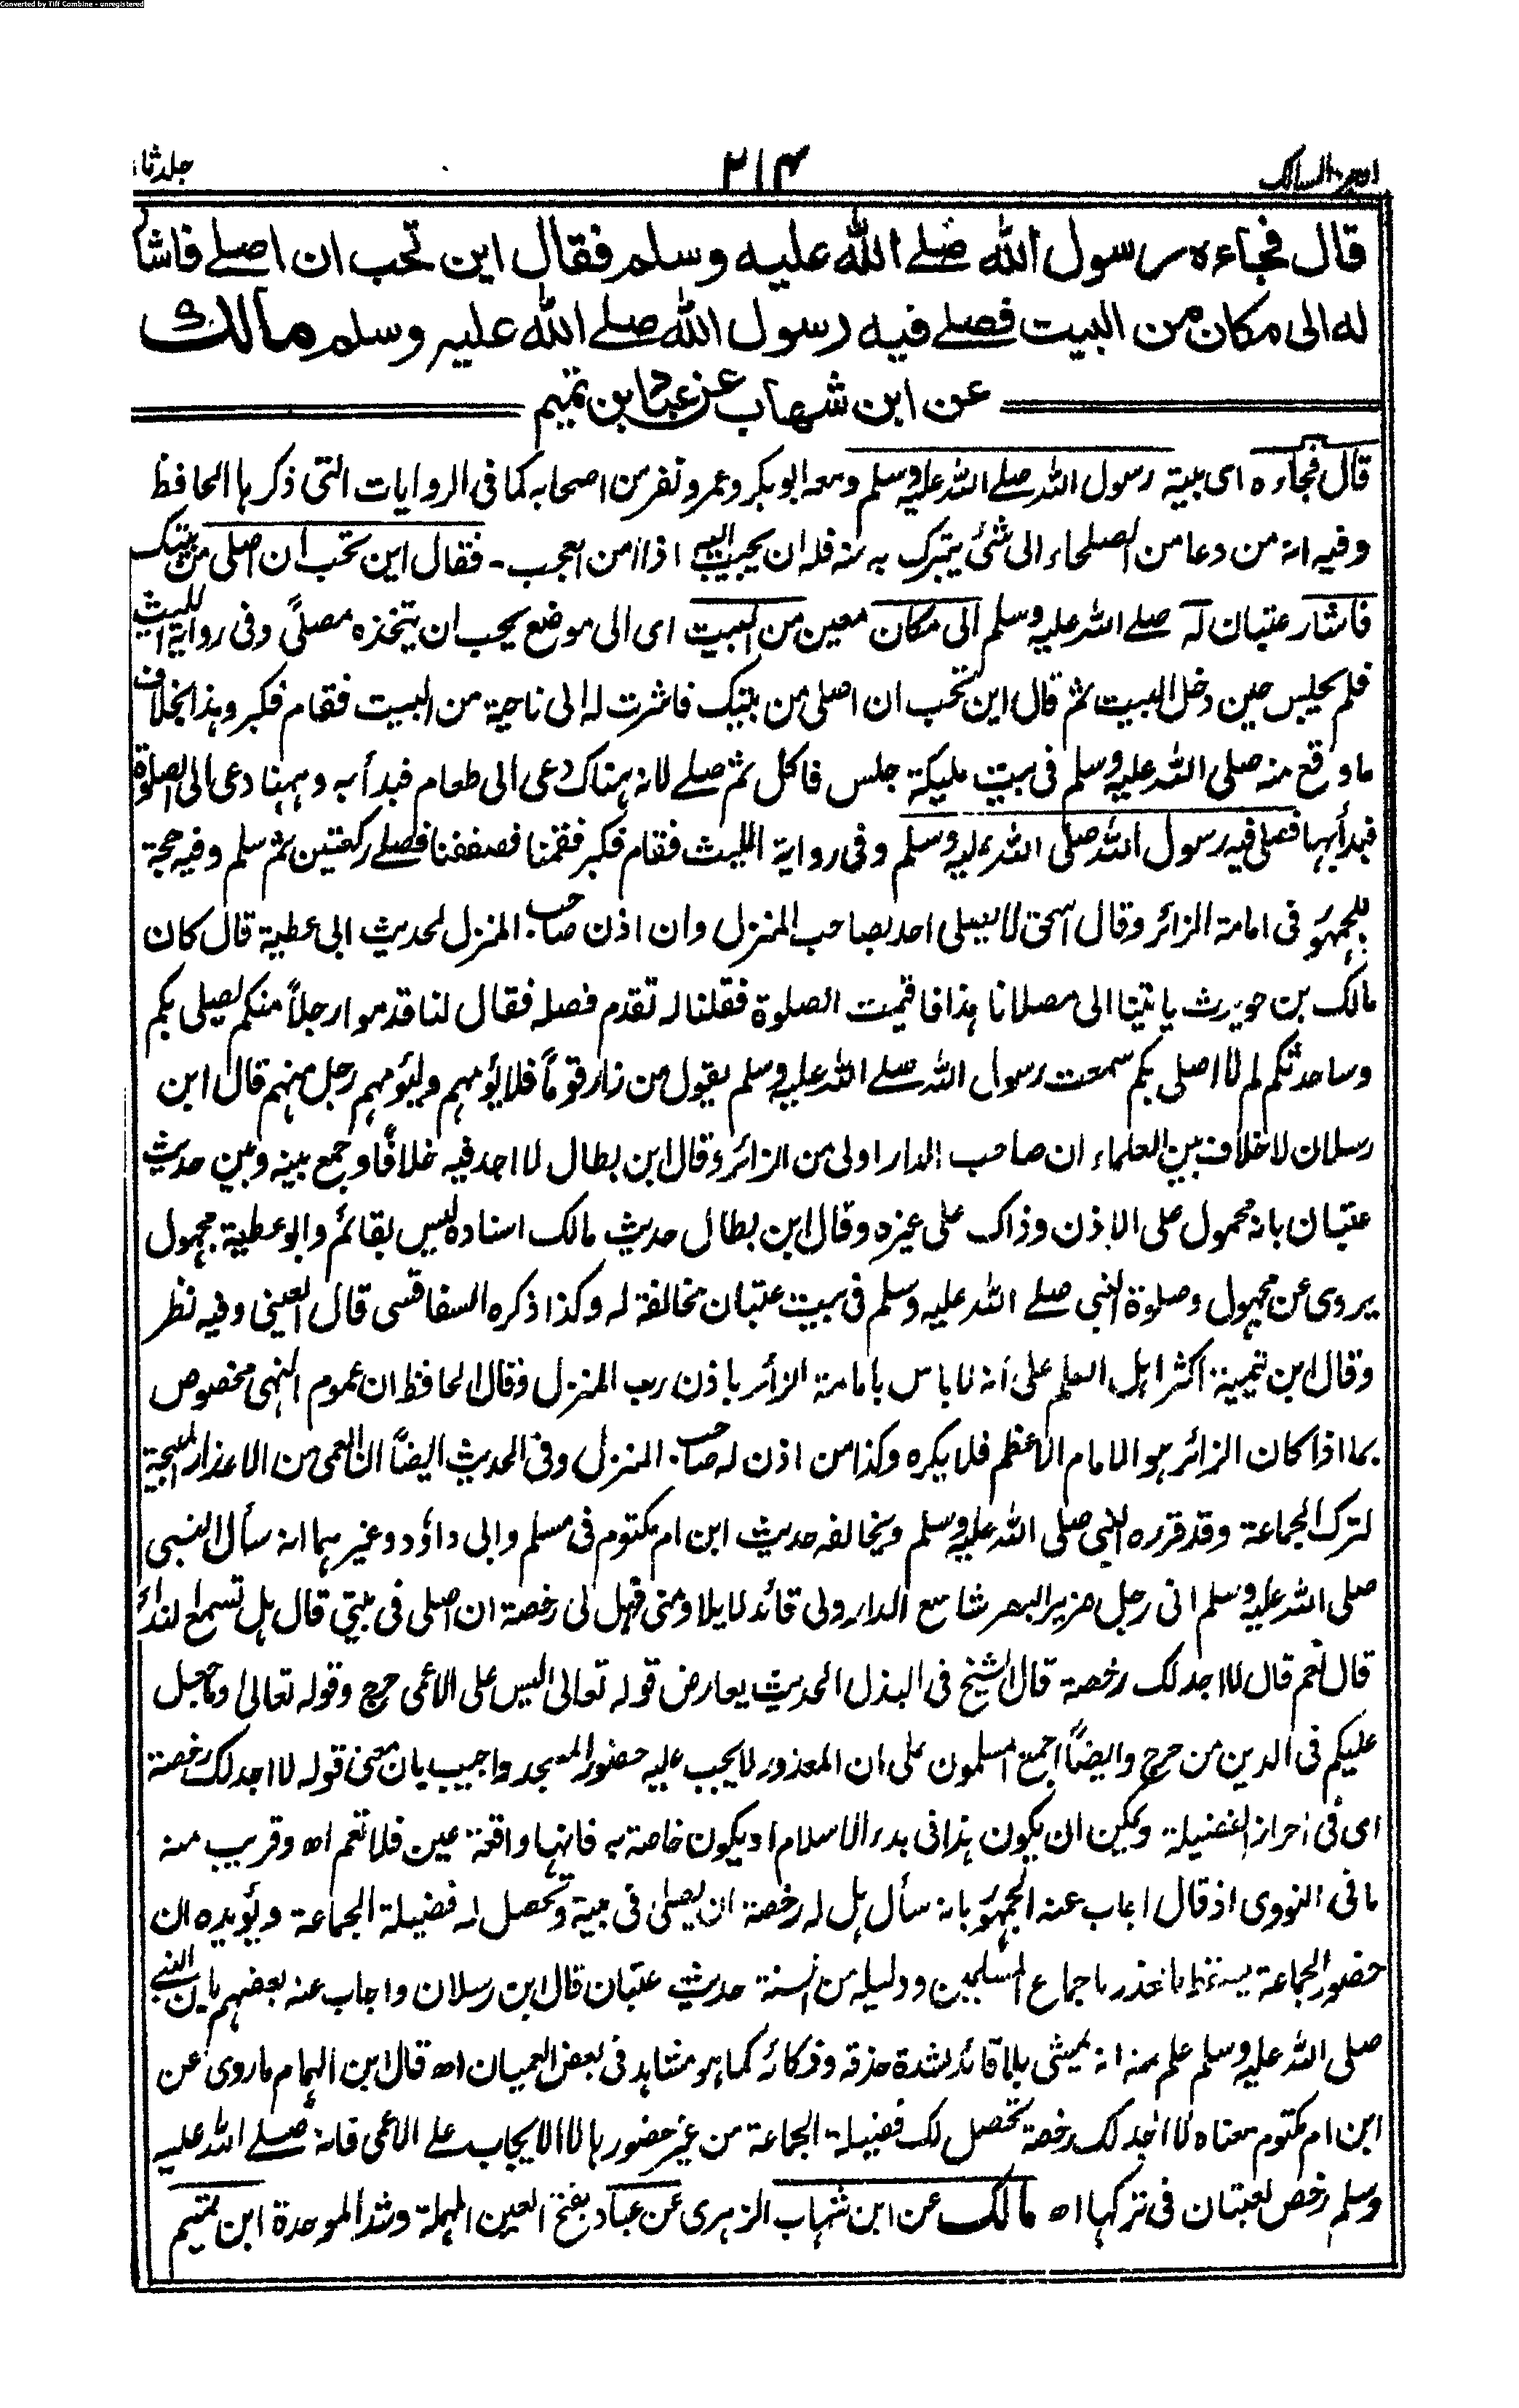 Converted by Tiff Combine - unregistered
اوجز المسالك
٢١٤
جلد ثا
قال فجاءه رسول الله صلے الله عليه وسلم فقال اين تحب ان اصلے فاشا
له الى مكان من البيت فصلے فيه رسول الله صلے الله عليه وسلم مالك
عن ابن شهاب عن عباد بن تميم
قال فجاءه اى بيته رسول الله صلے الله عليه وسلم ومعه ابو بكر وعمر ونفر من اصحابه كما فى الروايات التى ذكرها الحافظ
وفيه انه من دعا من الصلحاء الى شئ يتبرك به منه فله ان يجيب اليه اذا امن العجب - فقال اين تحب ان اصلى من بيتك
فاشار عتبان له صلے الله عليه وسلم الى مكان معين من البيت اى الى موضع يحب ان يتخذه مصلىً وفى رواية لليث
فلم يجلس حين دخل البيت ثم قال اين تحب ان اصلى من بيتك فاشرت له الى ناحية من البيت فقام فكبر وهذا بخلاف
ما وقع منه صلى الله عليه وسلم فى بيت مليكة جلس فاكل ثم صلے لانه هناك دعى الى طعام فبدأ به وههنا دعى الى الصلوة
فبدأ بها فصلى فيه رسول الله صلى الله عليه وسلم وفى رواية الليث فقام فكبر فقمنا فصففنا فصلے ركعتين ثم سلم وفيه حجة
للجمهور فى امامة الزائر وقال اسحق لا يصلى احد بصاحب المنزل وان اذن صاحب المنزل لحديث ابى عطية قال كان
مالك بن حويرث ياتينا الى مصلانا هذا فاقيمت الصلوة فقلنا له تقدم فصله فقال لنا قدموا رجلاً منكم يصلى بكم
وساحدثكم لم لا اصلى بكم سمعت رسول الله صلے الله عليه وسلم يقول من زار قوماً فلا يؤمهم وليؤمهم رجل منهم قال ابن
رسلان لا خلاف بين العلماء ان صاحب الدار اولى من الزائر وقال ابن بطال لا اجد فيه خلافاً وجمع بينه وبين حديث
عتبان بانه محمول على الاذن وذاك على غيره وقال ابن بطال حديث مالك اسناده ليس بقائم وابو عطية مجهول
يروى عن مجهول وصلوة النبى صلے الله عليه وسلم فى بيت عتبان مخالفة له وكذا ذكره السفاقسى قال العينى وفيه نظر
وقال ابن تيمية اكثر اهل العلم على انه لا باس بامامة الزائر باذن رب المنزل وقال الحافظ ان عموم النهى مخصوص
بما اذا كان الزائر هو الامام الاعظم فلا يكره وكذا من اذن له صاحب المنزل وفى الحديث ايضاً ان العمى من الاعذار المبيحة
لترك الجماعة وقد قرره النبى صلى الله عليه وسلم ويخالفه حديث ابن ام مكتوم فى مسلم وابى داؤد وغيرهما انه سأل النبى
صلى الله عليه وسلم انى رجل ضرير البصر شاسع الدار ولى قائد لا يلاومنى فهل لى رخصة ان اصلى فى بيتى قال هل تسمع النداء
قال نعم قال لا اجد لك رخصة قال الشيخ فى البذل الحديث يعارض قوله تعالى ليس على الاعمى حرج وقوله تعالى وما جعل
عليكم فى الدين من حرج وايضاً اجمع المسلمون على ان المعذور لا يجب عليه حضور المسجد واجيب بان معنى قوله لا اجد لك رخصة
اى فى احراز الفضيلة ويمكن ان يكون هذا فى بدء الاسلام او يكون خاصة به فانها واقعة عين فلا تعم اھ وقريب منه
ما فى النووى اذ قال اجاب عنه الجمهور بانه سأل هل له رخصة ان يصلى فى بيته وتحصل له فضيلة الجماعة ويؤيده ان
حضور الجماعة يسقط بالعذر باجماع المسلمين ودليله من السنة حديث عتبان قال ابن رسلان واجاب عنه بعضهم بان النبى
صلى الله عليه وسلم علم منه انه يمشى بلا قائد لشدة حذقه وذكائه كما هو مشاهد فى بعض العميان اھ قال ابن الهمام ما روى عن
ابن ام مكتوم معناه لا اجد لك رخصة تحصل لك فضيلة الجماعة من غير حضورها لا الايجاب على الاعمى فانه صلے الله عليه
وسلم رخص لعتبان فى تركها اھ مالك عن ابن شهاب الزهرى عن عباد بفتح العين المهملة وشد الموحدة ابن تميم